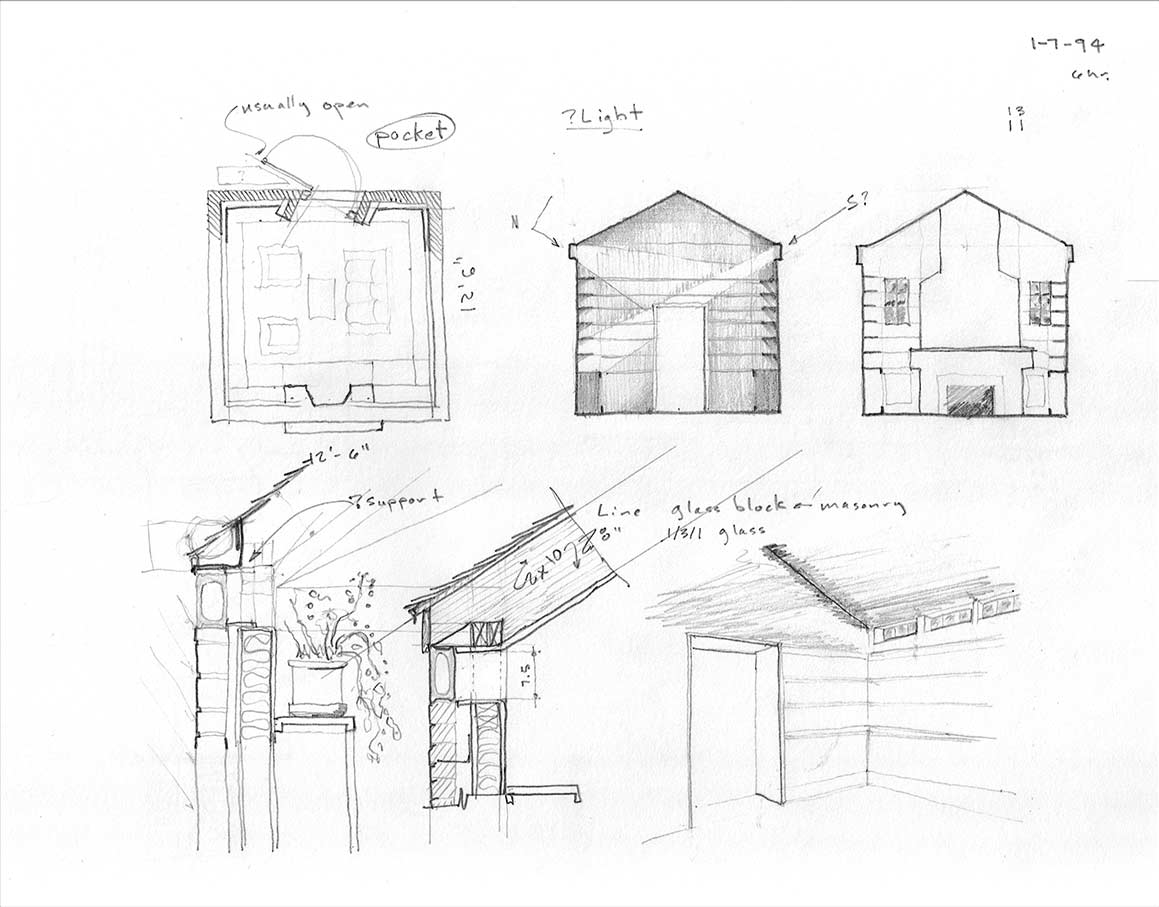 1-7-94
6hr.
usually open
pocket
?Light
13
11
?
N
S?
12'-6"
12'-6"
?support
Line glass block or masonry
1/3/1 glass
2x10
28"
7.5